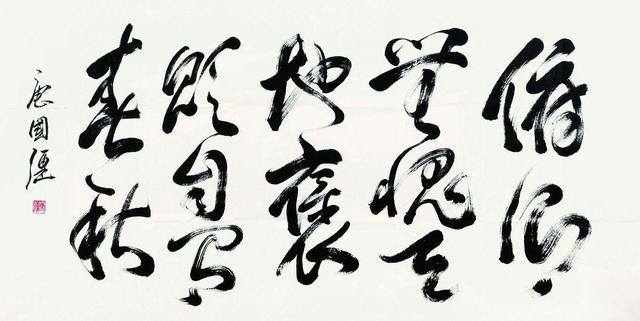 俯仰
無愧天
地褒
貶自有
春秋
唐國強